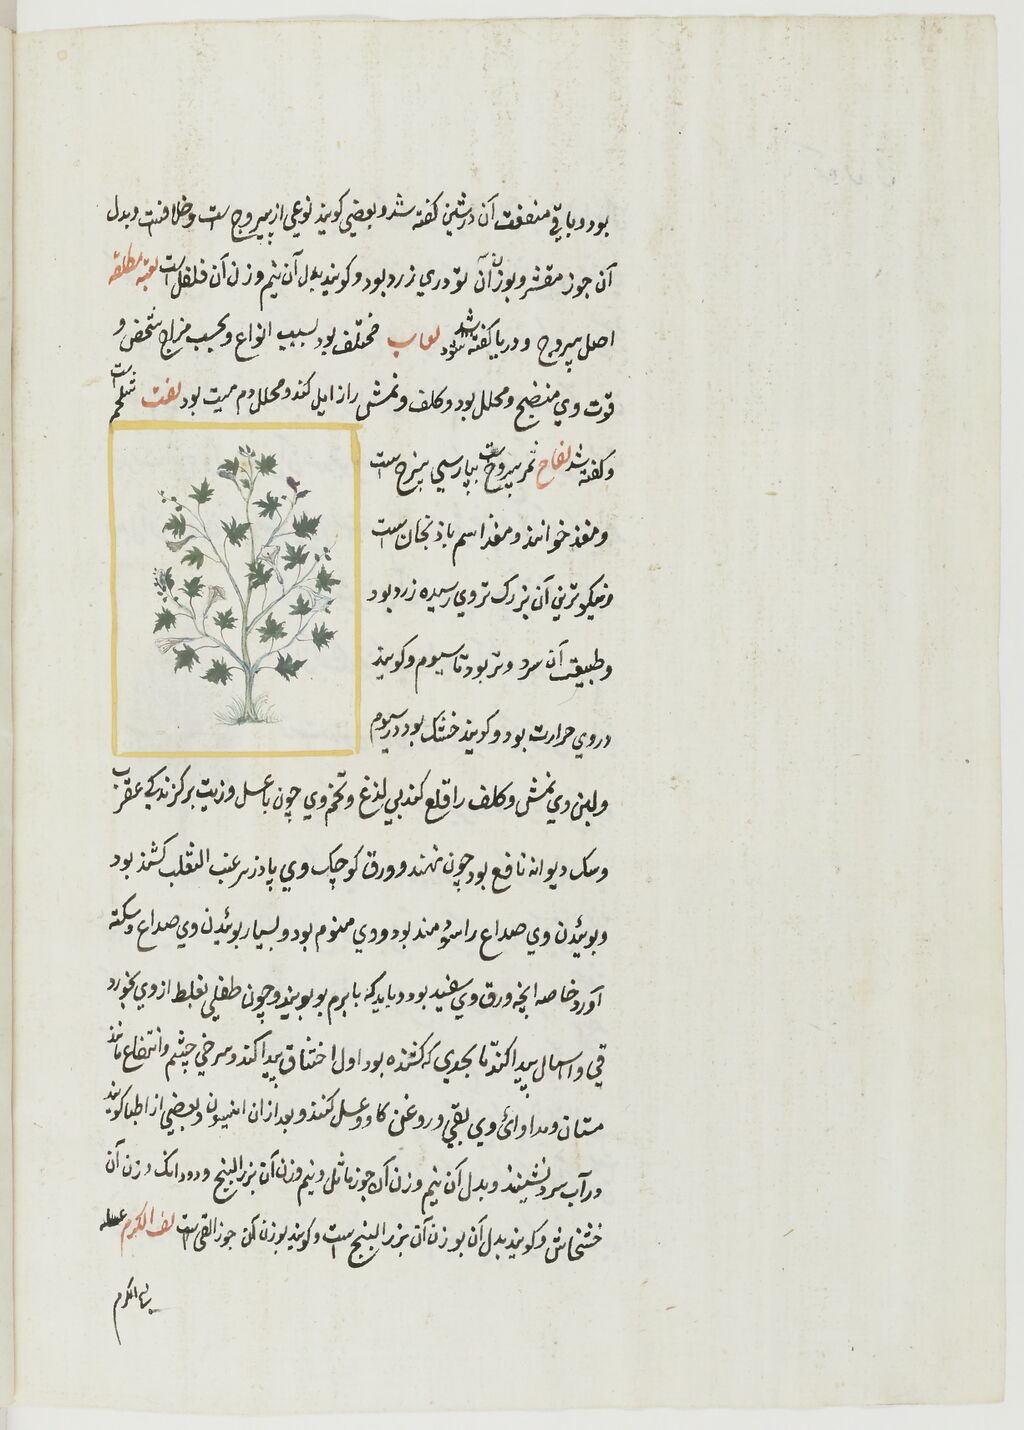 بود و باقی منفعت آن در شین گفته شد و بعضی کویند نوعی از یبروج است و خلافست و بدل
آن جوز مقشر و بوزن آن تودری زرد بود و کویند بدل آن نیم وزن آن فلفل است لعبه مطلقه
اصل یبروج و در یا کفته شود لعاب مختلف بود بسبب انواع و بحسب مزاج شخص و
قوّت وی منضج و محلل بود و کلف و نمش را زایل کند و محلل دم میت بود لفت شلجم است
و کفته شد لفاح ثمر یبروج است بپارسی
و مغد خوانند و مغد اسم باذنجان است
و نیکوترین آن بزرک تر وی رسیده زرد بود
و طبیعت آن سرد و تر بود تا سیوم و کویند
در وی حرارت بود و کویند خشک بود در سیوم
و لبن وی نمش و کلف را قلع کند بی لذغ و تخم وی چون با عسل و زیت بر کزندکی عقرب
و سک دیوانه نافع بود چون نهند و ورق کوچک وی پادزهر عنب الثعلب کشنده بود
و بوئیدن وی صداع را سود مند بود و وی منوم بود و بسیار بوئیدن وی صداع و سکته
آورد خاصه آنچه ورق وی سفید بود و باید که بویند و چون طفلی بغلط از وی بخورد
قی و اسهال پیدا کند تا بحدی که کشنده بود اول اختناق پیدا کند و سرخی چشم و انتفاخ مانند
مستان و مداوائ وی بقی و روغن کاو و عسل کنند و بعد از آن و بعضی از اطبا کویند
در آب سرد نشینند و بدل آن نیم وزن آن جوز ماثل و نیم وزن آن بزر البنج و دو دانک وزن آن
خشخاش و کویند بدل آن بوزن آن بزر البنج است و کویند بوزن آن جوز القی است لف الکرم